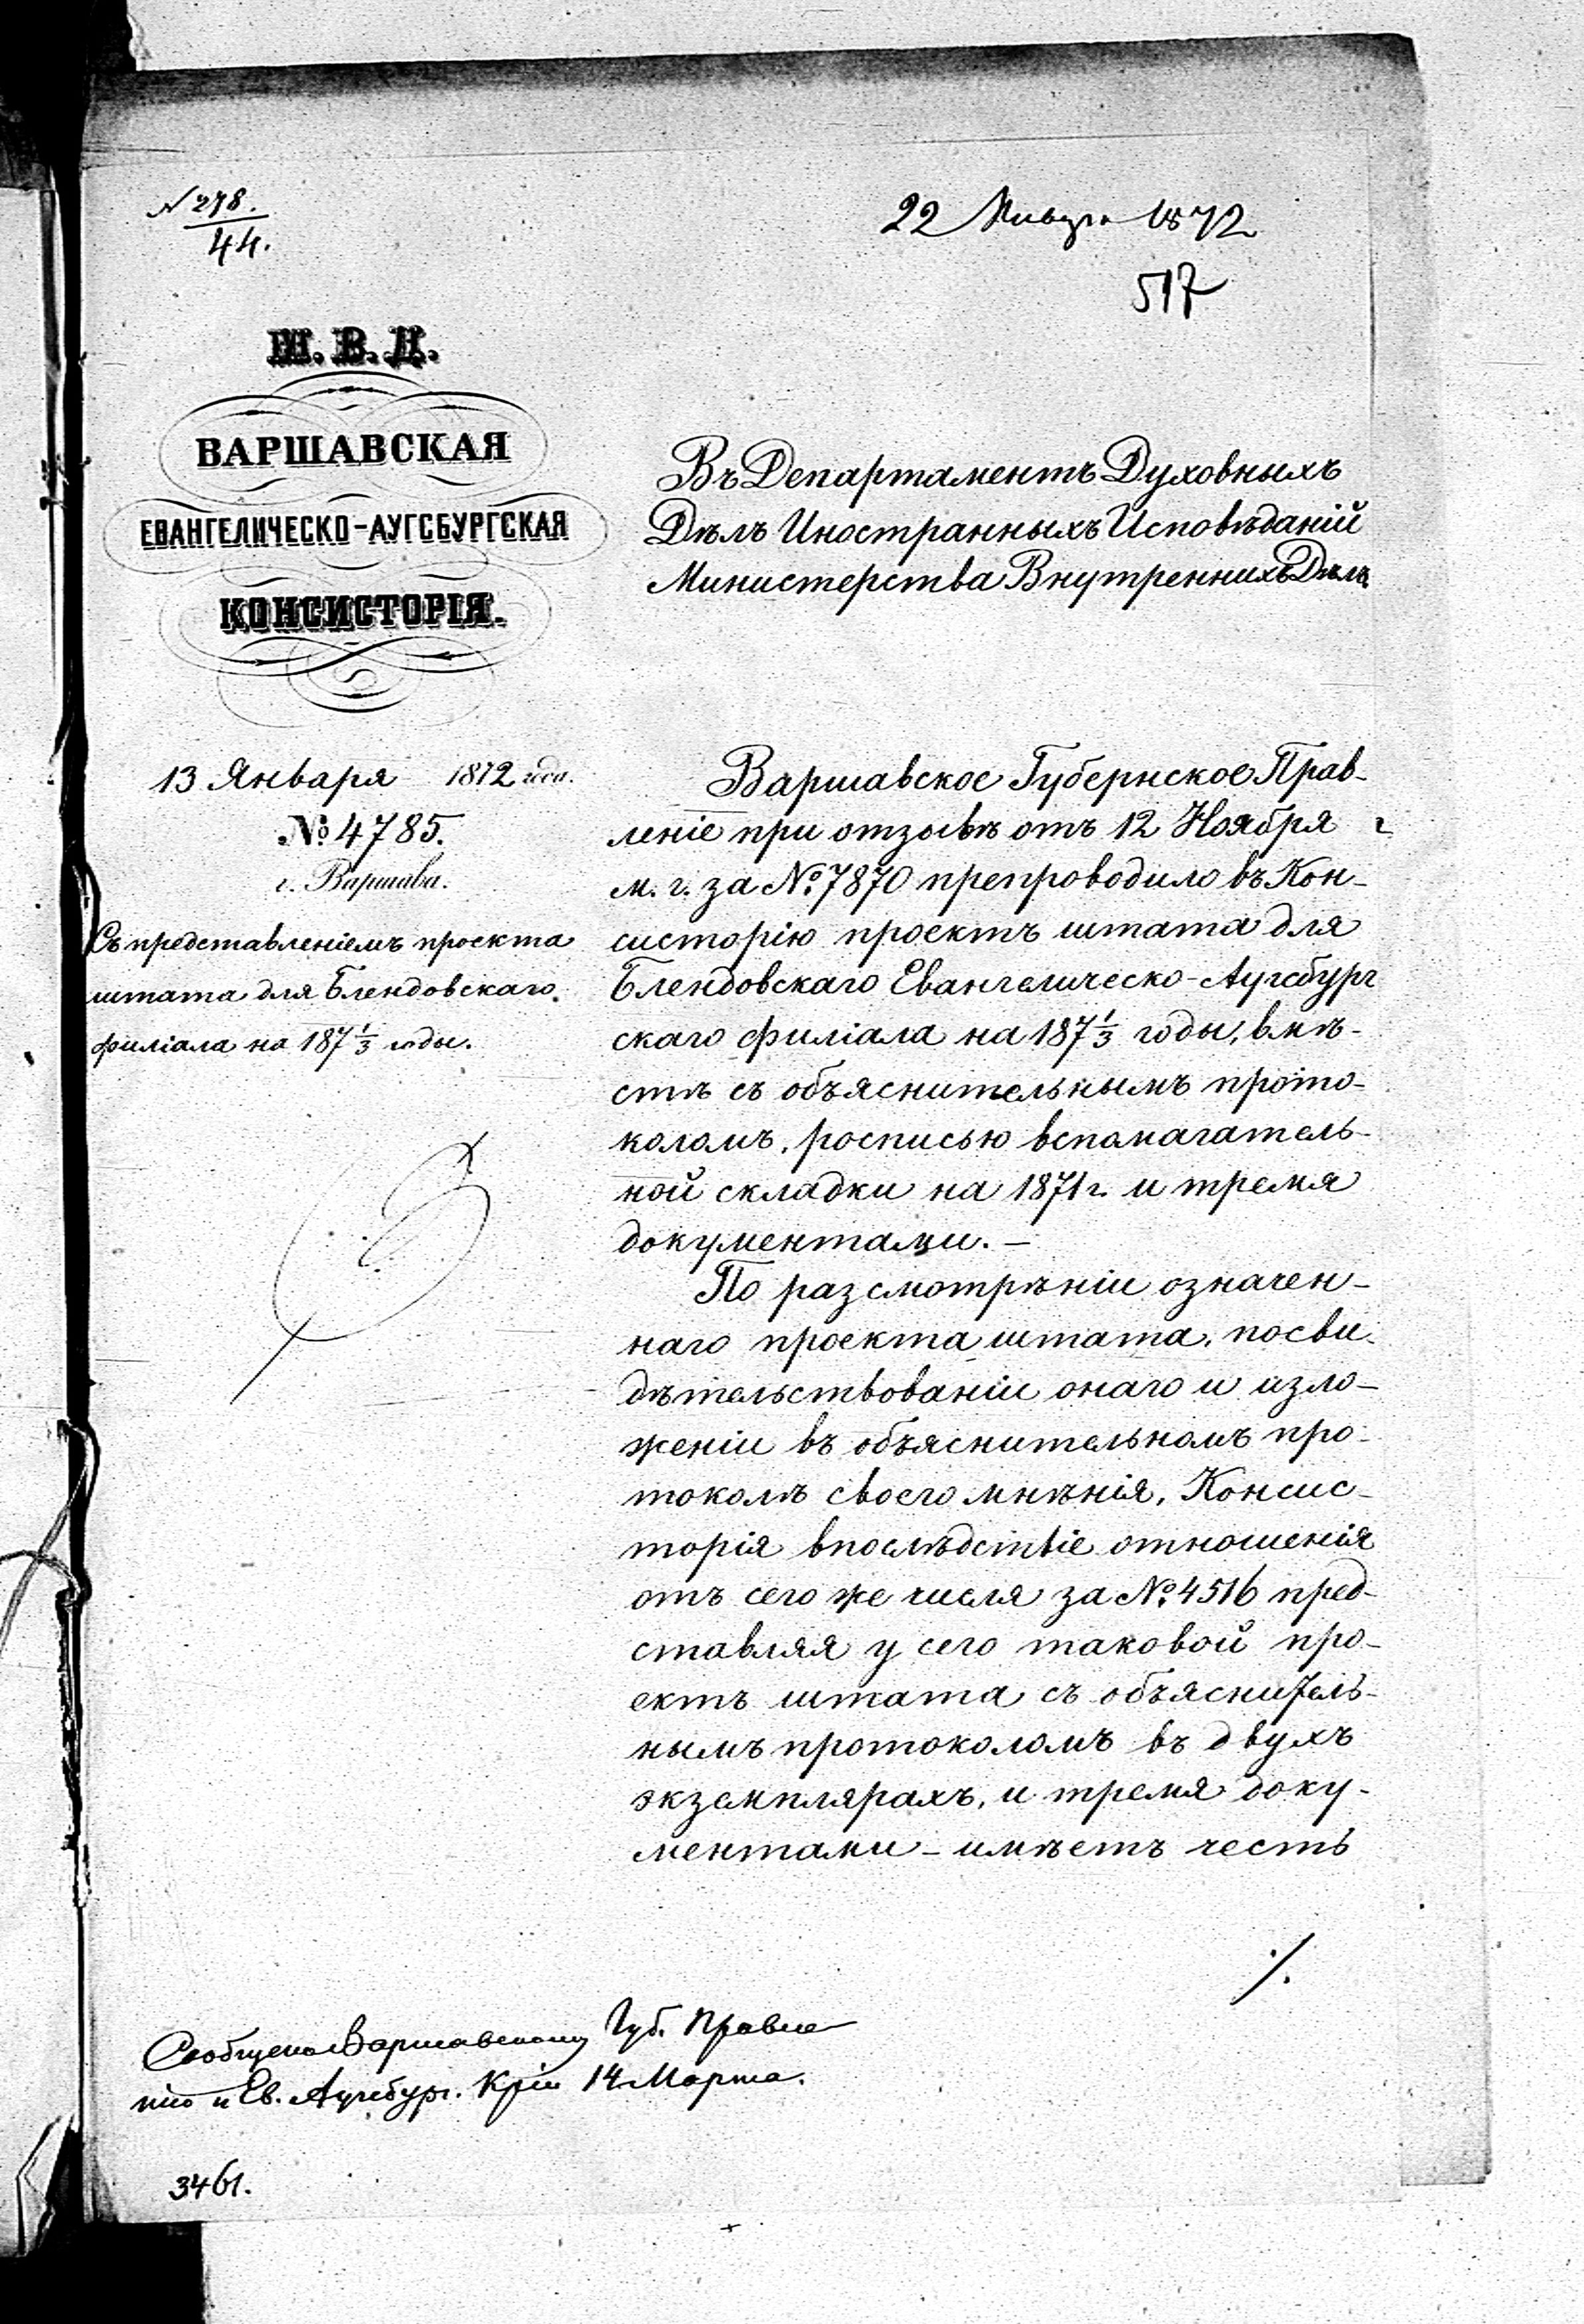 N 278.
44.
22 Января 1872
517
М. В. Д.
ВАРШАВСКАЯ
ЕВАНГЕЛИЧЕСКО-АУГСБУРГСКАЯ
КОНСИСТОРІЯ.
13 Января 1872 года.
№ 4785.
г. Варшава.
Съ представленіемъ проекта
штата для Блендовскаго
филіала на 187 1/3 годы.
Въ Департаментъ Духовныхъ
Дѣлъ Иностранныхъ Исповѣданій
Министерства Внутреннихъ Дѣлъ
Варшавское Губернское Прав-
леніе при отзывѣ отъ 12 Ноября
м. г. за № 7870 препроводило въ Кон-
систорію проектъ штата для
Блендовскаго Евангелическо-Аугсбург
скаго филіала на 187 1/3 годы, вмѣ-
стѣ съ объяснительнымъ прото-
коломъ, росписью вспомагатель-
ной складки на 1871 г. и тремя
документами. —
По разсмотрѣніи означен-
наго проекта штата, посви-
дѣтельствованіи онаго и изло-
женіи въ объяснительномъ про-
токолѣ своего мнѣнія, Консис-
торія впослѣдствіе отношенія
отъ сего же числа за № 4516 пред-
ставляя у сего таковой про-
ектъ штата съ объяснитель-
нымъ протоколомъ въ двухъ
экземплярахъ, и тремя доку-
ментами - имѣетъ честь
./.
Сообщено Варшавскому Губ. Правле
нію и Ев. Аугсбург. Кріи 14 Марта.
3461.